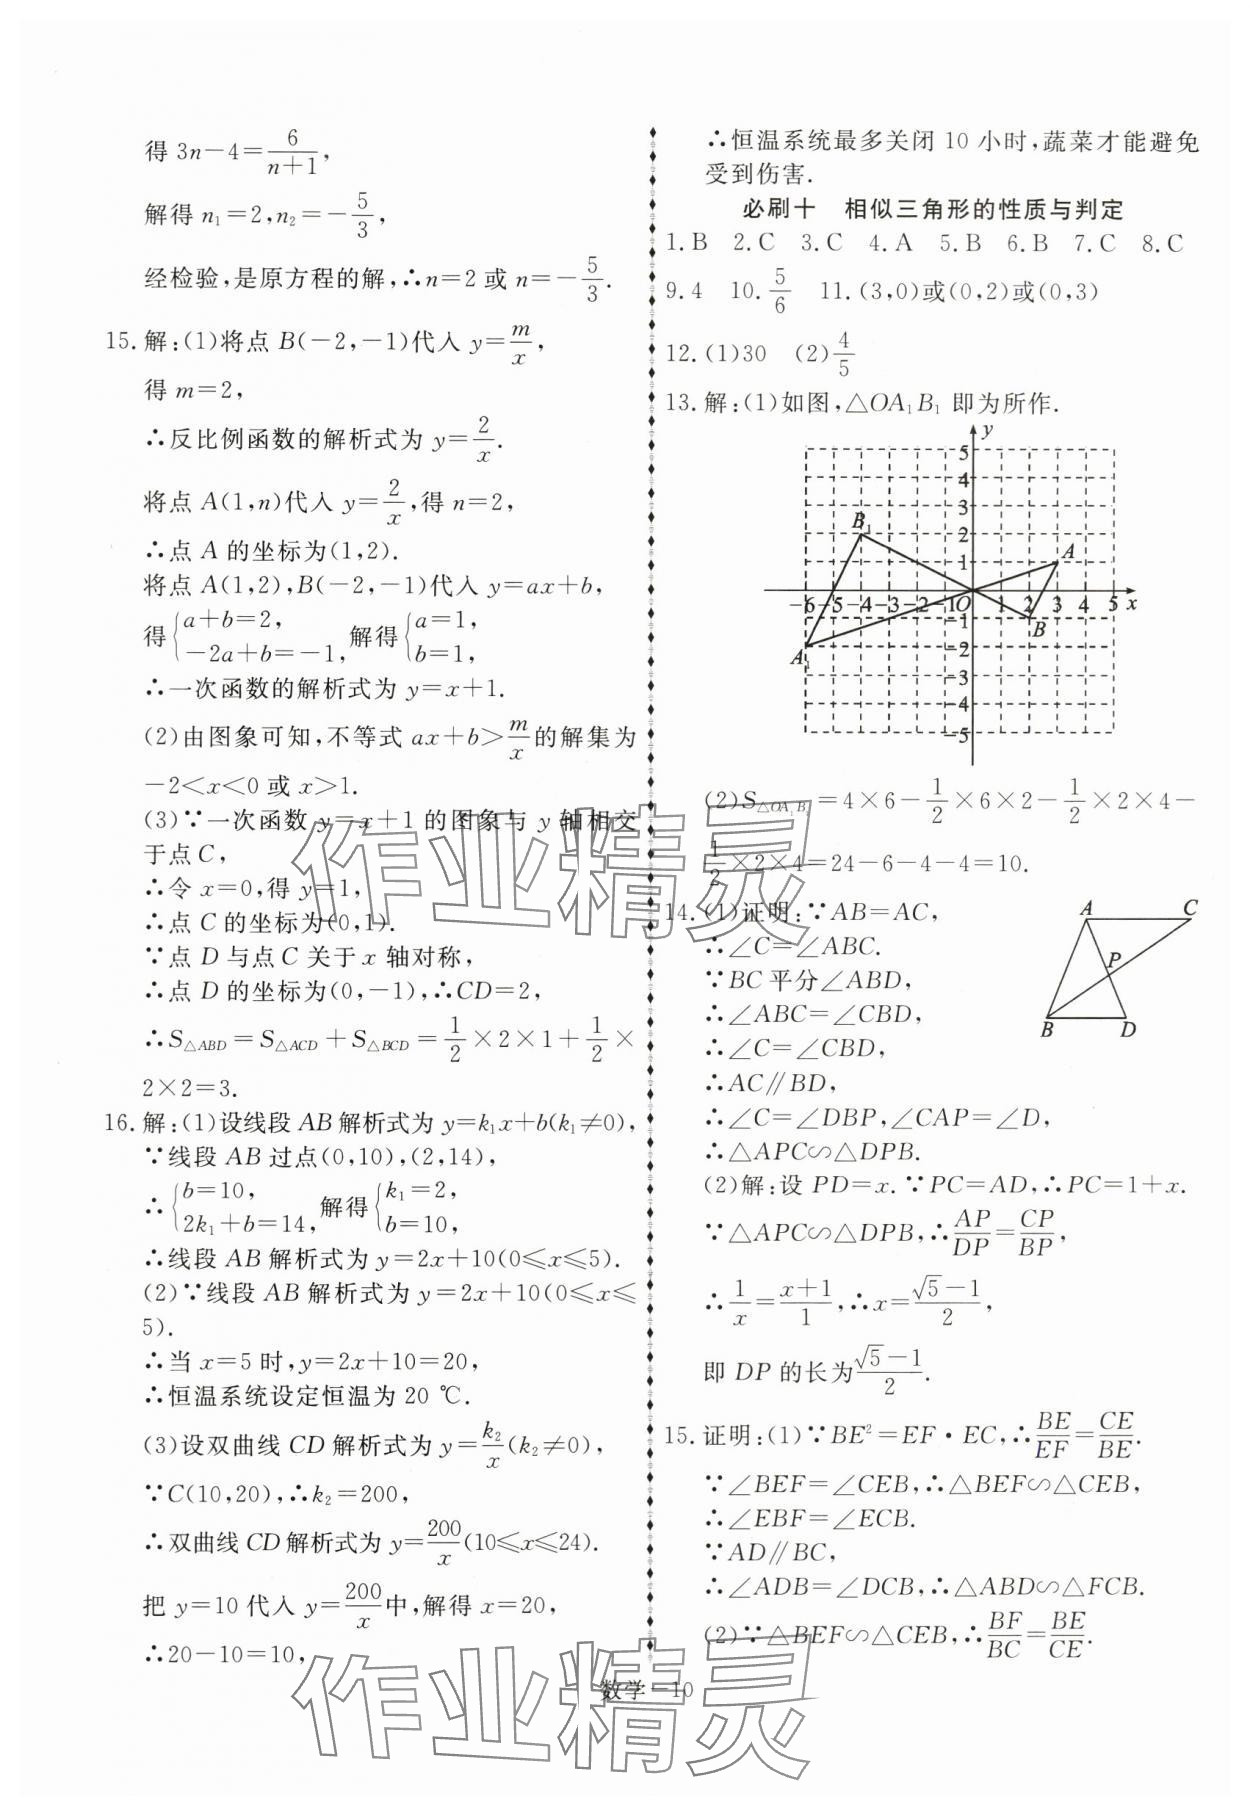 得 3n－4＝6/(n＋1),
解得 n₁＝2,n₂＝－5/3,
经检验,是原方程的解,∴n＝2 或 n＝－5/3.
15.解:(1)将点 B(－2,－1)代入 y＝m/x,
得 m＝2,
∴反比例函数的解析式为 y＝2/x.
将点 A(1,n)代入 y＝2/x,得 n＝2,
∴点 A 的坐标为(1,2).
将点 A(1,2),B(－2,－1)代入 y＝ax＋b,
得{a＋b＝2, －2a＋b＝－1, 解得{a＝1, b＝1,
∴一次函数的解析式为 y＝x＋1.
(2)由图象可知,不等式 ax＋b＞m/x的解集为
－2＜x＜0 或 x＞1.
(3)∵一次函数 y＝x＋1 的图象与 y 轴相交
于点 C,
∴令 x＝0,得 y＝1,
∴点 C 的坐标为(0,1).
∵点 D 与点 C 关于 x 轴对称,
∴点 D 的坐标为(0,－1),∴CD＝2,
∴S△ABD＝S△ACD＋S△BCD＝1/2×2×1＋1/2×
2×2＝3.
16.解:(1)设线段 AB 解析式为 y＝k₁x＋b(k₁≠0),
∵线段 AB 过点(0,10),(2,14),
∴{b＝10, 2k₁＋b＝14, 解得{k₁＝2, b＝10,
∴线段 AB 解析式为 y＝2x＋10(0≤x≤5).
(2)∵线段 AB 解析式为 y＝2x＋10(0≤x≤
5).
∴当 x＝5 时,y＝2x＋10＝20,
∴恒温系统设定恒温为 20 ℃.
(3)设双曲线 CD 解析式为 y＝k₂/x(k₂≠0),
∵C(10,20),∴k₂＝200,
∴双曲线 CD 解析式为 y＝200/x(10≤x≤24).
把 y＝10 代入 y＝200/x中,解得 x＝20,
∴20－10＝10,
∴恒温系统最多关闭 10 小时,蔬菜才能避免
受到伤害.
必刷十　相似三角形的性质与判定
1.B 2.C 3.C 4.A 5.B 6.B 7.C 8.C
9.4 10.5/6 11.(3,0)或(0,2)或(0,3)
12.(1)30 (2)4/5
13.解:(1)如图,△OA₁B₁ 即为所作.
y
5
4
3
2
1
B₁
A
－6 －5 －4 －3 －2 －1 O 1 2 3 4 5 x
－1
B
A₁
－2
－3
－4
－5
(2)S△OA₁B₁＝4×6－1/2×6×2－1/2×2×4－
1/2×2×4＝24－6－4－4＝10.
14.(1)证明:∵AB＝AC,
∴∠C＝∠ABC.
∵BC 平分∠ABD,
∴∠ABC＝∠CBD,
∴∠C＝∠CBD,
∴AC∥BD,
∴∠C＝∠DBP,∠CAP＝∠D,
∴△APC∽△DPB.
A C
P
B D
(2)解:设 PD＝x.∵PC＝AD,∴PC＝1＋x.
∵△APC∽△DPB,∴AP/DP＝CP/BP,
∴1/x＝(x＋1)/1,∴x＝(√5－1)/2,
即 DP 的长为(√5－1)/2.
15.证明:(1)∵BE²＝EF·EC,∴BE/EF＝CE/BE.
∵∠BEF＝∠CEB,∴△BEF∽△CEB,
∴∠EBF＝∠ECB.
∵AD∥BC,
∴∠ADB＝∠DCB,∴△ABD∽△FCB.
(2)∵△BEF∽△CEB,∴BF/BC＝BE/CE.
数学－10
作业精灵
作业精灵